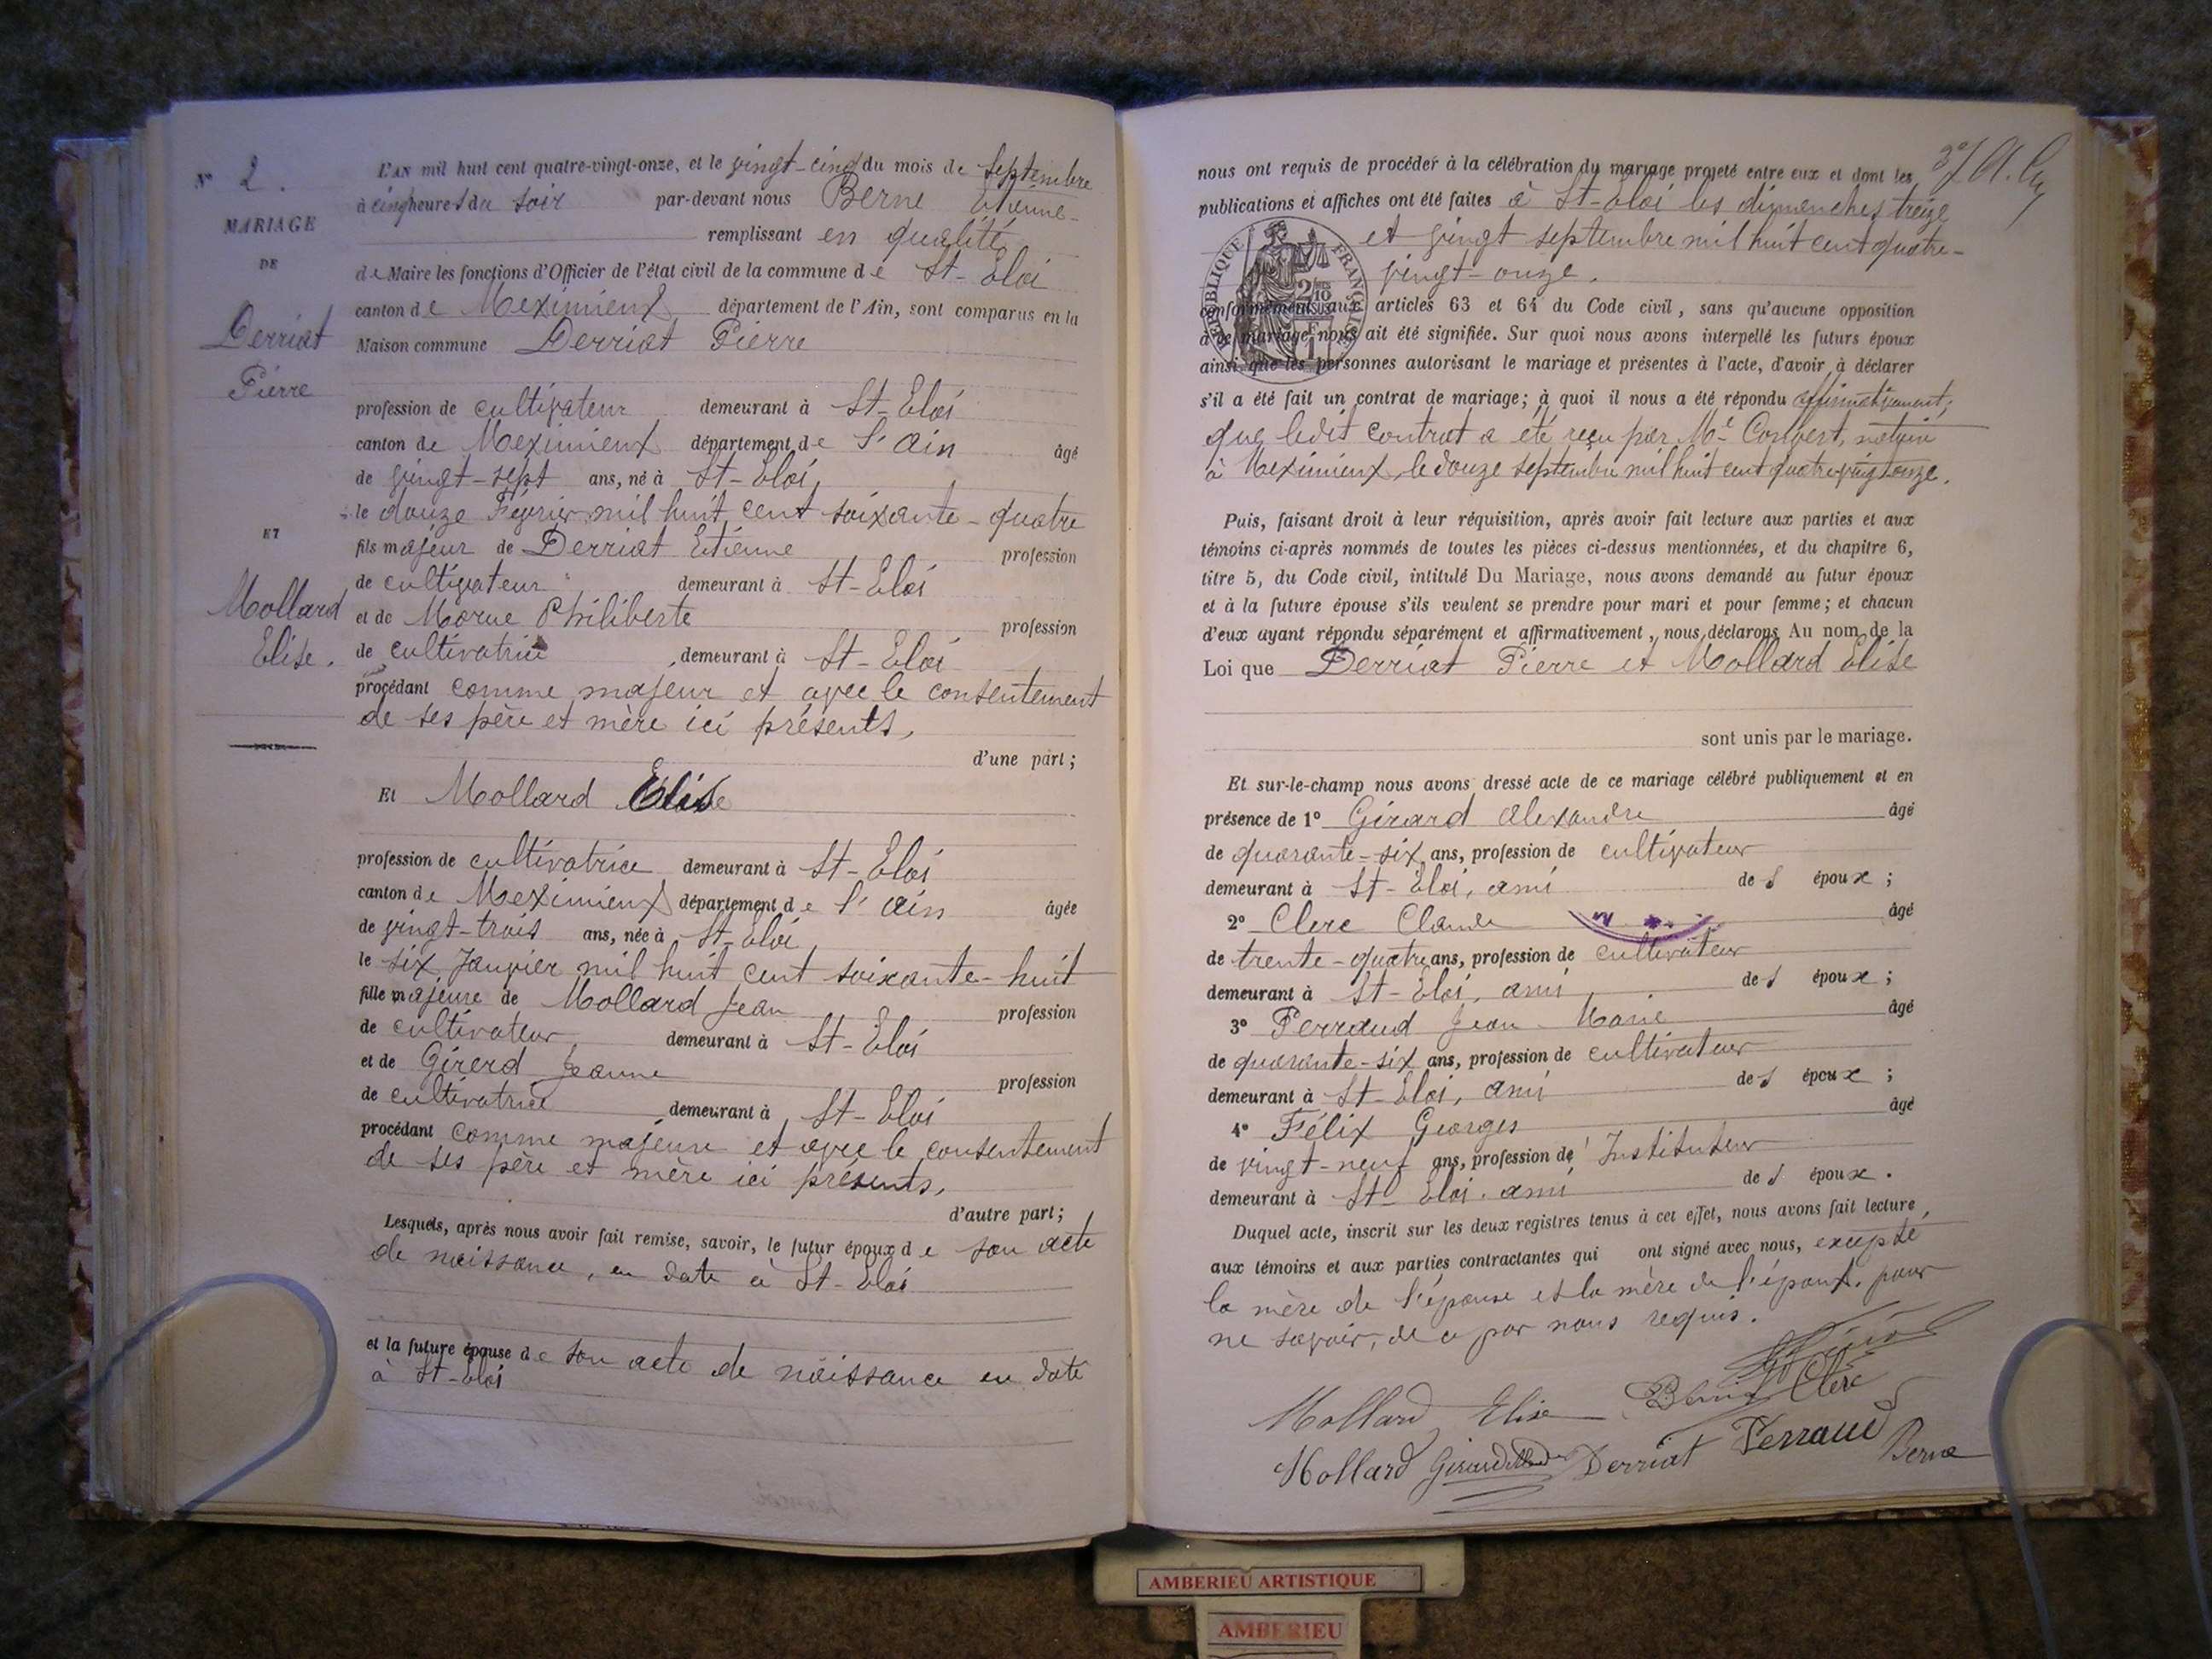 N° 2.
MARIAGE
DE
Derriat
Pierre
ET
Mollard
Elise.
L'AN mil huit cent quatre-vingt-onze, et le vingt-cinq du mois de Septembre
à cinq heures du soir par-devant nous Berne Etienne
remplissant en qualité
de Maire les fonctions d'Officier de l'état civil de la commune de St-Eloi
canton de Meximieux département de l'Ain, sont comparus en la
Maison commune Derriat Pierre
profession de cultivateur demeurant à St-Eloi
canton de Meximieux département de l'Ain âgé
de vingt-sept ans, né à St-Eloi
le douze Février mil huit cent soixante-quatre
fils majeur de Derriat Etienne profession
de cultivateur demeurant à St-Eloi
et de Morue Philiberte profession
de cultivatrice demeurant à St-Eloi
procédant comme majeur et avec le consentement
de ses père et mère ici présents,
d'une part;
Et Mollard Elise
profession de cultivatrice demeurant à St-Eloi
canton de Meximieux département de l'Ain âgée
de vingt-trois ans, née à St-Eloi
le six Janvier mil huit cent soixante-huit
fille majeure de Mollard Jean profession
de cultivateur demeurant à St-Eloi
et de Girerd Jeanne profession
de cultivatrice demeurant à St-Eloi
procédant comme majeure et avec le consentement
de ses père et mère ici présents,
d'autre part;
Lesquels, après nous avoir fait remise, savoir, le futur époux de son acte
de naissance, en date à St-Eloi
et la future épouse de son acte de naissance en date
à St-Eloi
nous ont requis de procéder à la célébration du mariage projeté entre eux et dont les
publications et affiches ont été faites à St-Eloi les dimanches treize
et vingt septembre mil huit cent quatre-
vingt-onze.
RÉPUBLIQUE FRANÇAISE
2/10 EN SUS
1 F
conformément aux articles 63 et 64 du Code civil, sans qu'aucune opposition
à ce mariage nous ait été signifiée. Sur quoi nous avons interpellé les futurs époux
ainsi que les personnes autorisant le mariage et présentes à l'acte, d'avoir à déclarer
s'il a été fait un contrat de mariage; à quoi il nous a été répondu affirmativement;
que ledit contrat a été reçu par Me Convert, notaire
à Meximieux, le douze septembre mil huit cent quatre-vingt onze.
Puis, faisant droit à leur réquisition, après avoir fait lecture aux parties et aux
témoins ci-après nommés de toutes les pièces ci-dessus mentionnées, et du chapitre 6,
titre 5, du Code civil, intitulé Du Mariage, nous avons demandé au futur époux
et à la future épouse s'ils veulent se prendre pour mari et pour femme; et chacun
d'eux ayant répondu séparément et affirmativement, nous déclarons Au nom de la
Loi que Derriat Pierre et Mollard Elise
sont unis par le mariage.
Et sur-le-champ nous avons dressé acte de ce mariage célébré publiquement et en
présence de 1° Girard Alexandre âgé
de quarante-six ans, profession de cultivateur
demeurant à St-Eloi, ami des époux;
2° Clerc Claude âgé
de trente-quatre ans, profession de cultivateur
demeurant à St-Eloi, ami des époux;
3° Perraud Jean-Marie âgé
de quarante-six ans, profession de cultivateur
demeurant à St-Eloi, ami des époux;
4° Félix Georges âgé
de vingt-neuf ans, profession de Instituteur
demeurant à St-Eloi, ami des époux.
Duquel acte, inscrit sur les deux registres tenus à cet effet, nous avons fait lecture,
aux témoins et aux parties contractantes qui ont signé avec nous, excepté
la mère de l'épouse et la mère de l'époux, pour
ne savoir, de ce par nous requis.
Mollard Elise Clerc
Mollard Derriat Perraud Berne
AMBERIEU ARTISTIQUE
AMBERIEU